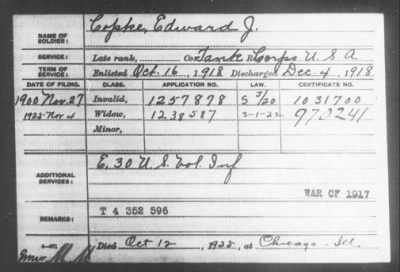 NAME OF SOLDIER: Copke, Edward J.
SERVICE: Late rank, Co. Tank Corps U S A
TERM OF SERVICE: Enlisted Oct. 16, 1918 Discharged Dec. 4, 1918
DATE OF FILING. CLASS. APPLICATION NO. LAW. CERTIFICATE NO.
1900 Nov. 27 Invalid, 1257878 1031700
1925 Nov 4 Widow, 1238587 970241
Minor,
ADDITIONAL SERVICES: E. 30 U.S. Vol. Inf
WAR OF 1917
REMARKS: T 4 352 596
Died Oct 12, 1925, at Chicago Ill.